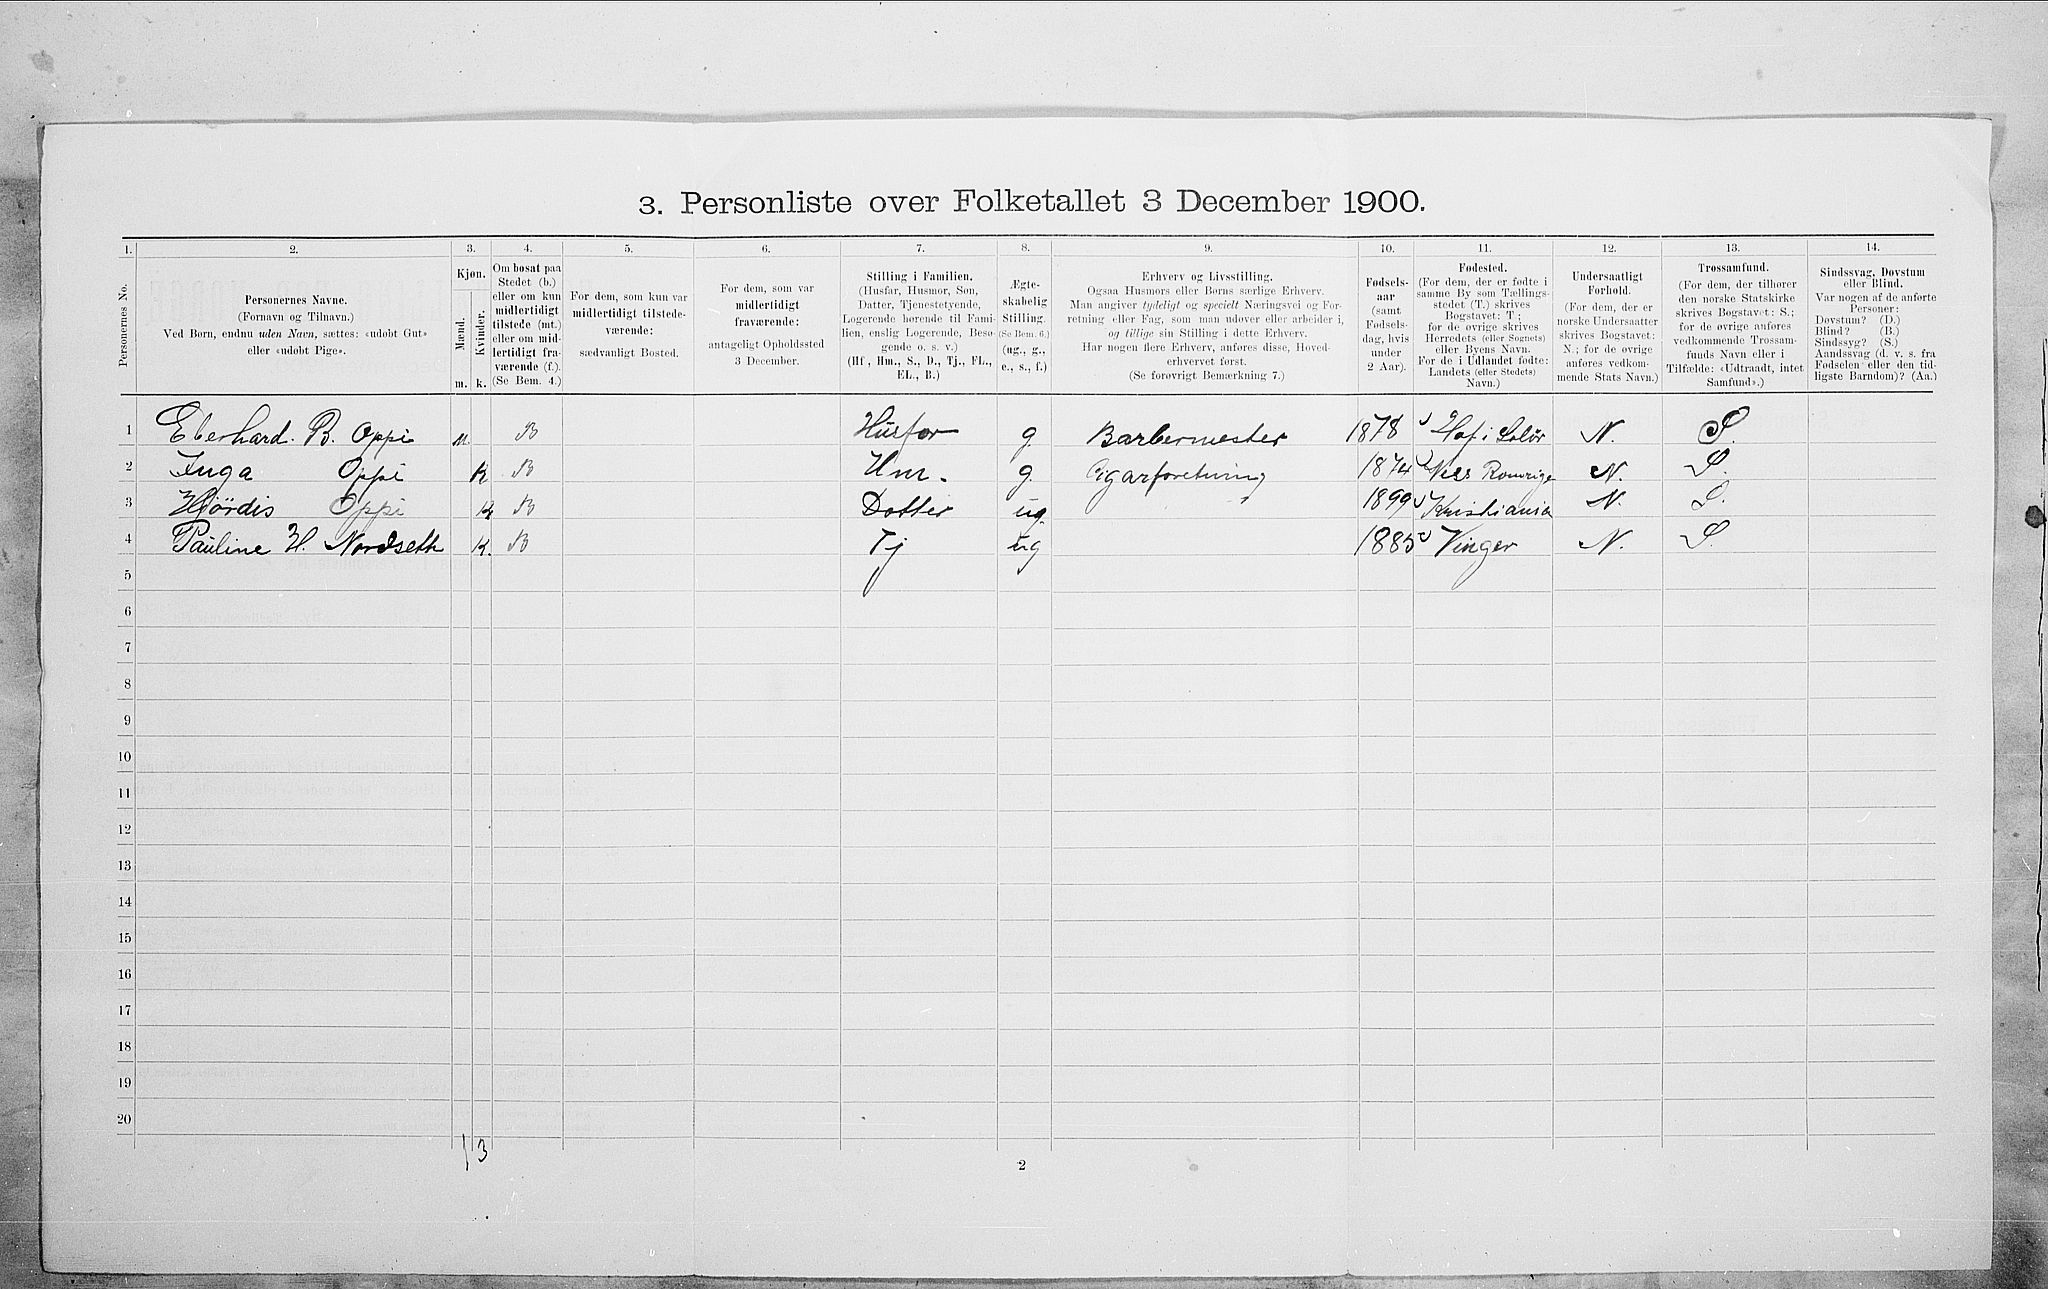 3. Personliste over Folketallet 3 December 1900.
1. 2. 3. 4. 5. 6. 7. 8. 9. 10. 11. 12. 13. 14.
Personernes No.
Personernes Navne.
(Fornavn og Tilnavn.)
Ved Børn, endnu uden Navn, sættes: «udøbt Gut»
eller «udøbt Pige».
Kjøn.
Mænd.
Kvinder.
m. k.
Om bosat paa
Stedet (b.)
eller om kun
midlertidigt
tilstede (mt.)
eller om mid-
lertidigt fra-
værende (f.).
(Se Bem. 4.)
For dem, som kun var
midlertidigt tilstede-
værende:
sædvanligt Bosted.
For dem, som var
midlertidigt
fraværende:
antageligt Opholdssted
3 December.
Stilling i Familien.
(Husfar, Husmor, Søn,
Datter, Tjenestetyende,
Logerende hørende til Fami-
lien, enslig Logerende, Besø-
gende o. s. v.)
(Hf, Hm., S., D., Tj., FL.,
EL., B.)
Ægte-
skabelig
Stilling.
(Se Bem. 6.)
(ug., g.,
e., s., f.)
Erhverv og Livsstilling.
Ogsaa Husmors eller Børns særlige Erhverv.
Man angiver tydeligt og specielt Næringsvei og For-
retning eller Fag, som man udøver eller arbeider i,
og tillige sin Stilling i dette Erhverv.
Har nogen flere Erhverv, anføres disse, Hoved-
erhvervet først.
(Se forøvrigt Bemærkning 7.)
Fødsels-
aar
(samt
Fødsels-
dag, hvis
under
2 Aar).
Fødested.
(For dem, der er fødte i
samme By som Tællings-
stedet (T.) skrives
Bogstavet: T;
for de øvrige skrives
Herredets (eller Sognets)
eller Byens Navn.
For de i Udlandet fødte:
Landets (eller Stedets)
Navn.)
Undersaatligt
Forhold.
(For dem, der er
norske Undersaatter
skrives Bogstavet:
N.; for de øvrige
anføres vedkom-
mende Stats Navn.)
Trossamfund.
(For dem, der tilhører
den norske Statskirke
skrives Bogstavet: S.;
for de øvrige anføres
vedkommende Trossam-
funds Navn eller i
Tilfælde: «Udtraadt, intet
Samfund».)
Sindssvag, Døvstum
eller Blind.
Var nogen af de anførte
Personer:
Døvstum? (D.)
Blind? (B.)
Sindssyg? (S.)
Aandssvag (d. v. s. fra
Fødselen eller den tid-
ligste Barndom)? (Aa.)
1 Eberhard. B. Oppi m. B Husfar g Barbermester 1878 Hof i Solør N. S.
2 Inga Oppi K B Hm. g. Cigarforetning 1874 Nes Romrige N. S.
3 Hjördis Oppi K B Datter ug. 1899 Kristiania N. S.
4 Pauline H. Nordseth K. B Tj ug 1885 Vinger N. S.
5
6
7
8
9
10
11
12
13
14
15
16
17
18
19
20
1 3
2